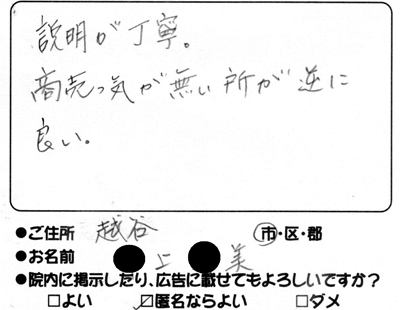 説明が丁寧。
商売っ気が無い所が逆に
良い。
●ご住所 越谷 市・区・郡
●お名前 ●上●美
●院内に掲示したり、広告に載せてもよろしいですか?
□よい ☑匿名ならよい □ダメ